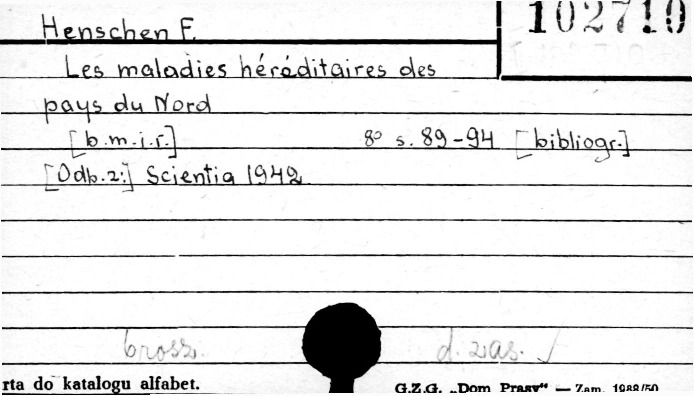 Henschen F.
102710
Les maladies héréditaires des
pays du Nord
[b.m.i.r.] 8º s. 89-94 [bibliogr.]
[Odb.z:] Scientia 1942
brosz. d. zas. ✓
rta do katalogu alfabet. G.Z.G. „Dom Prasy" — Zam. 1988/50